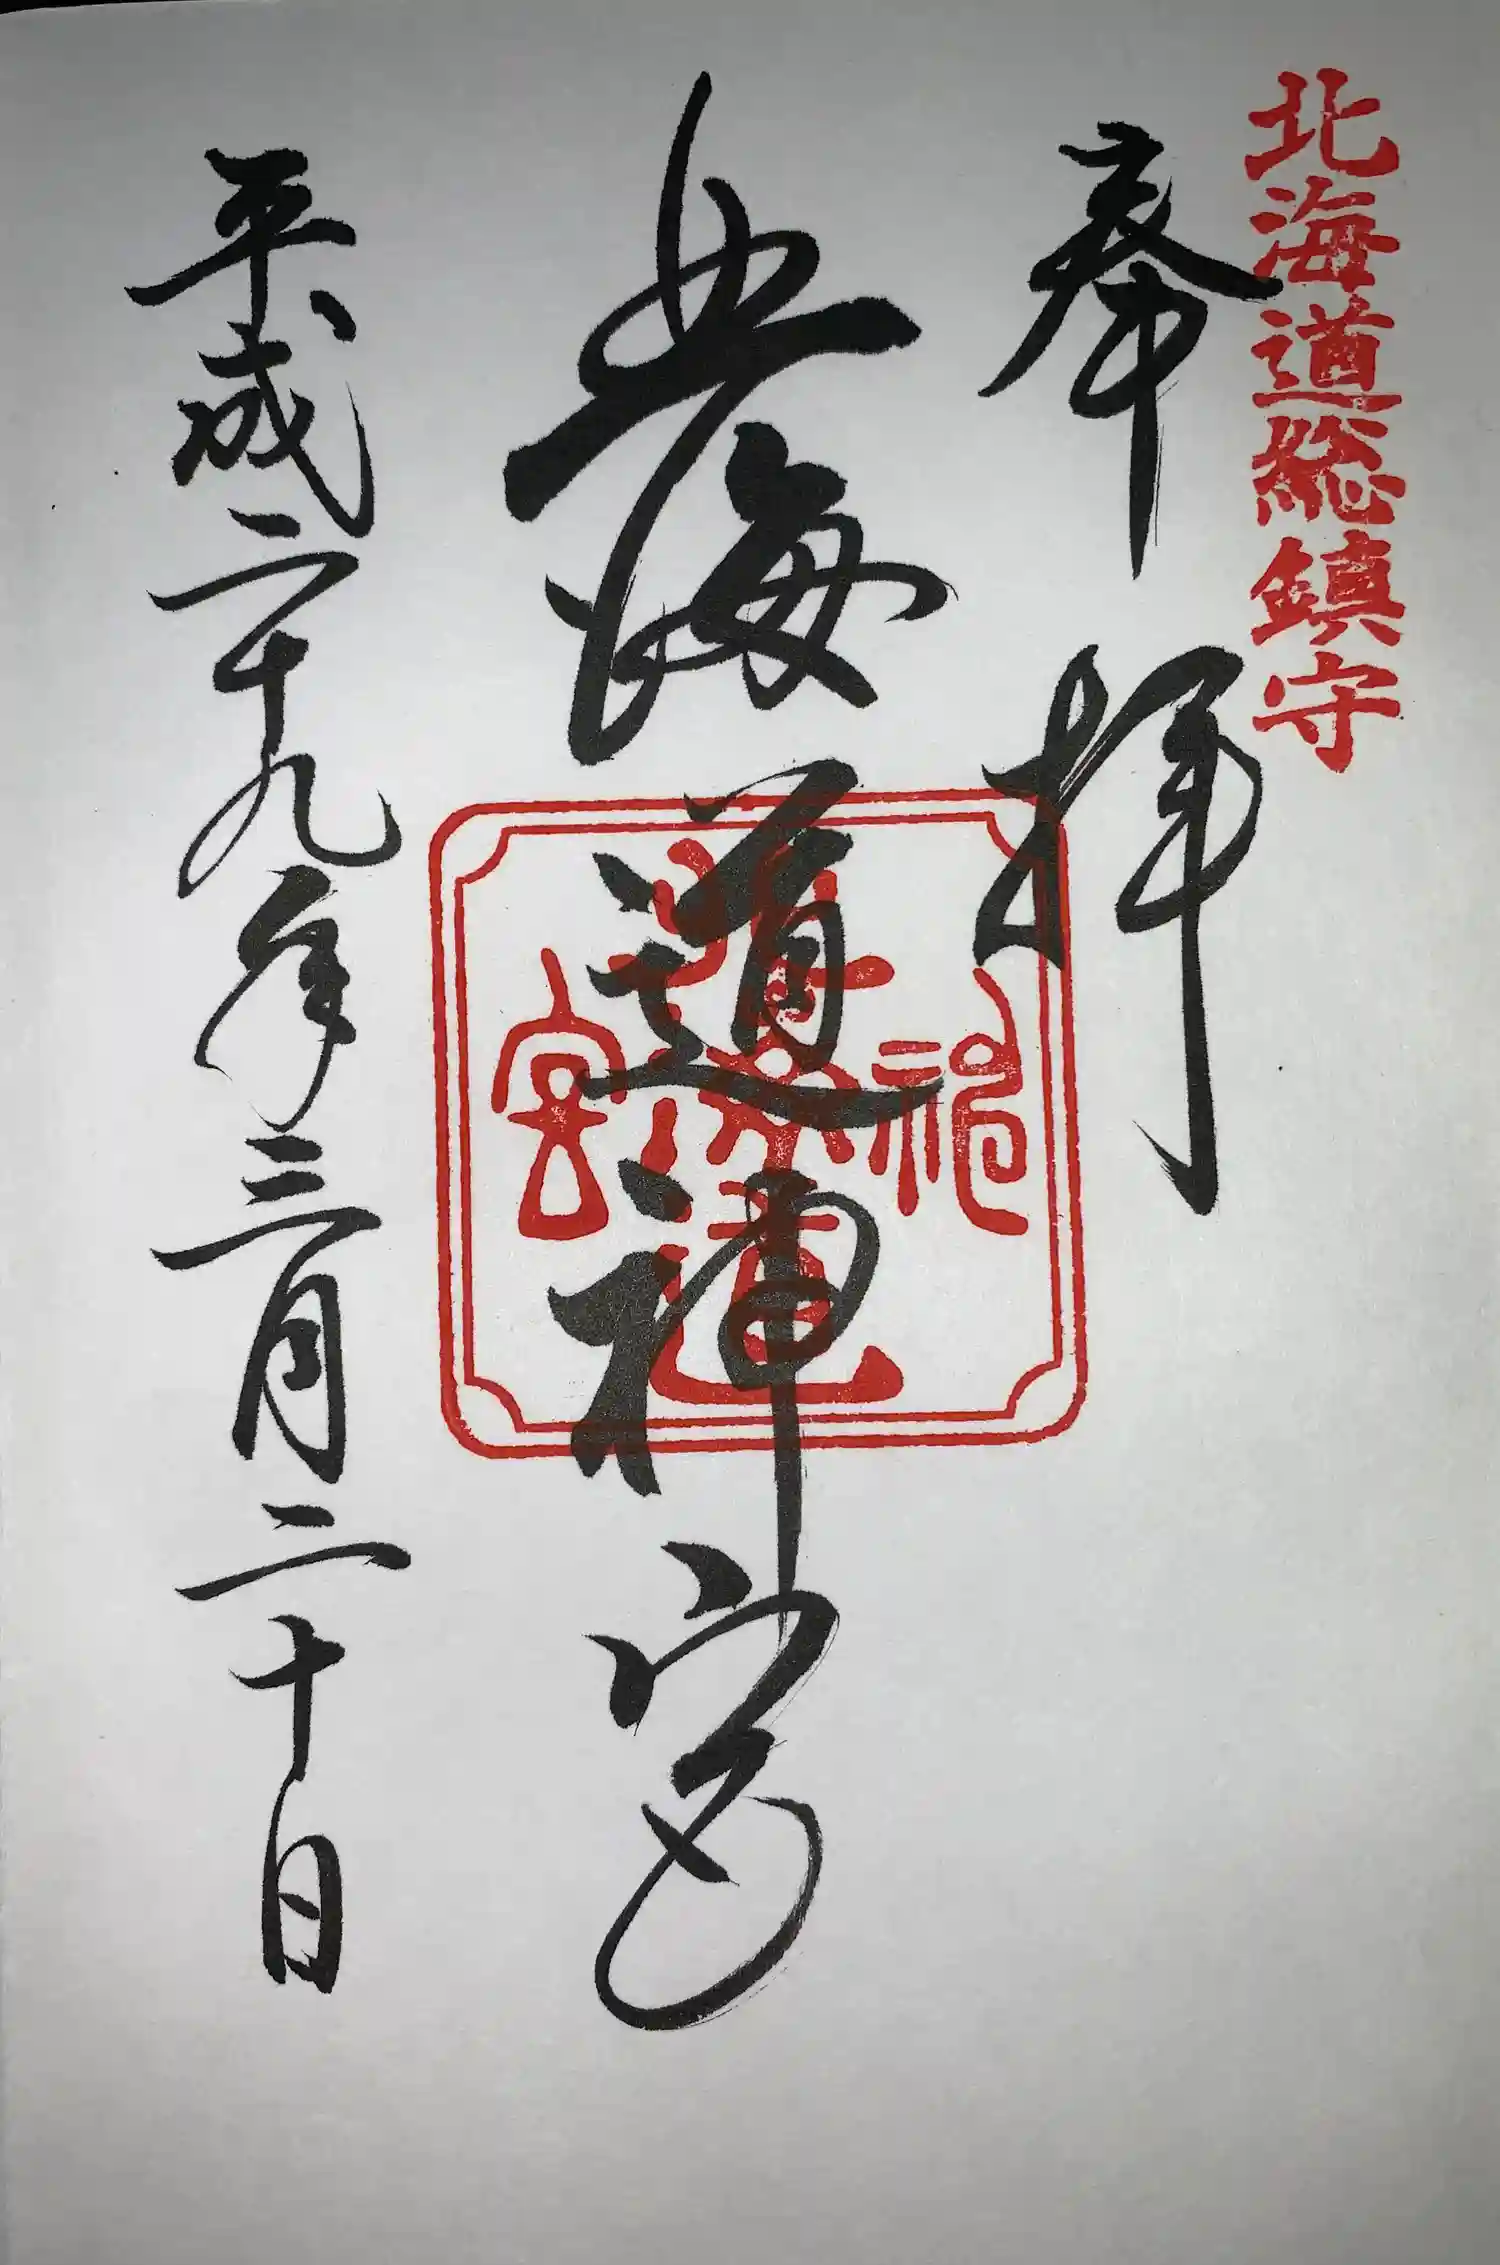 北海道総鎮守
奉拝
北海道神宮
平成二十九年三月二十日
神
北海道
宮